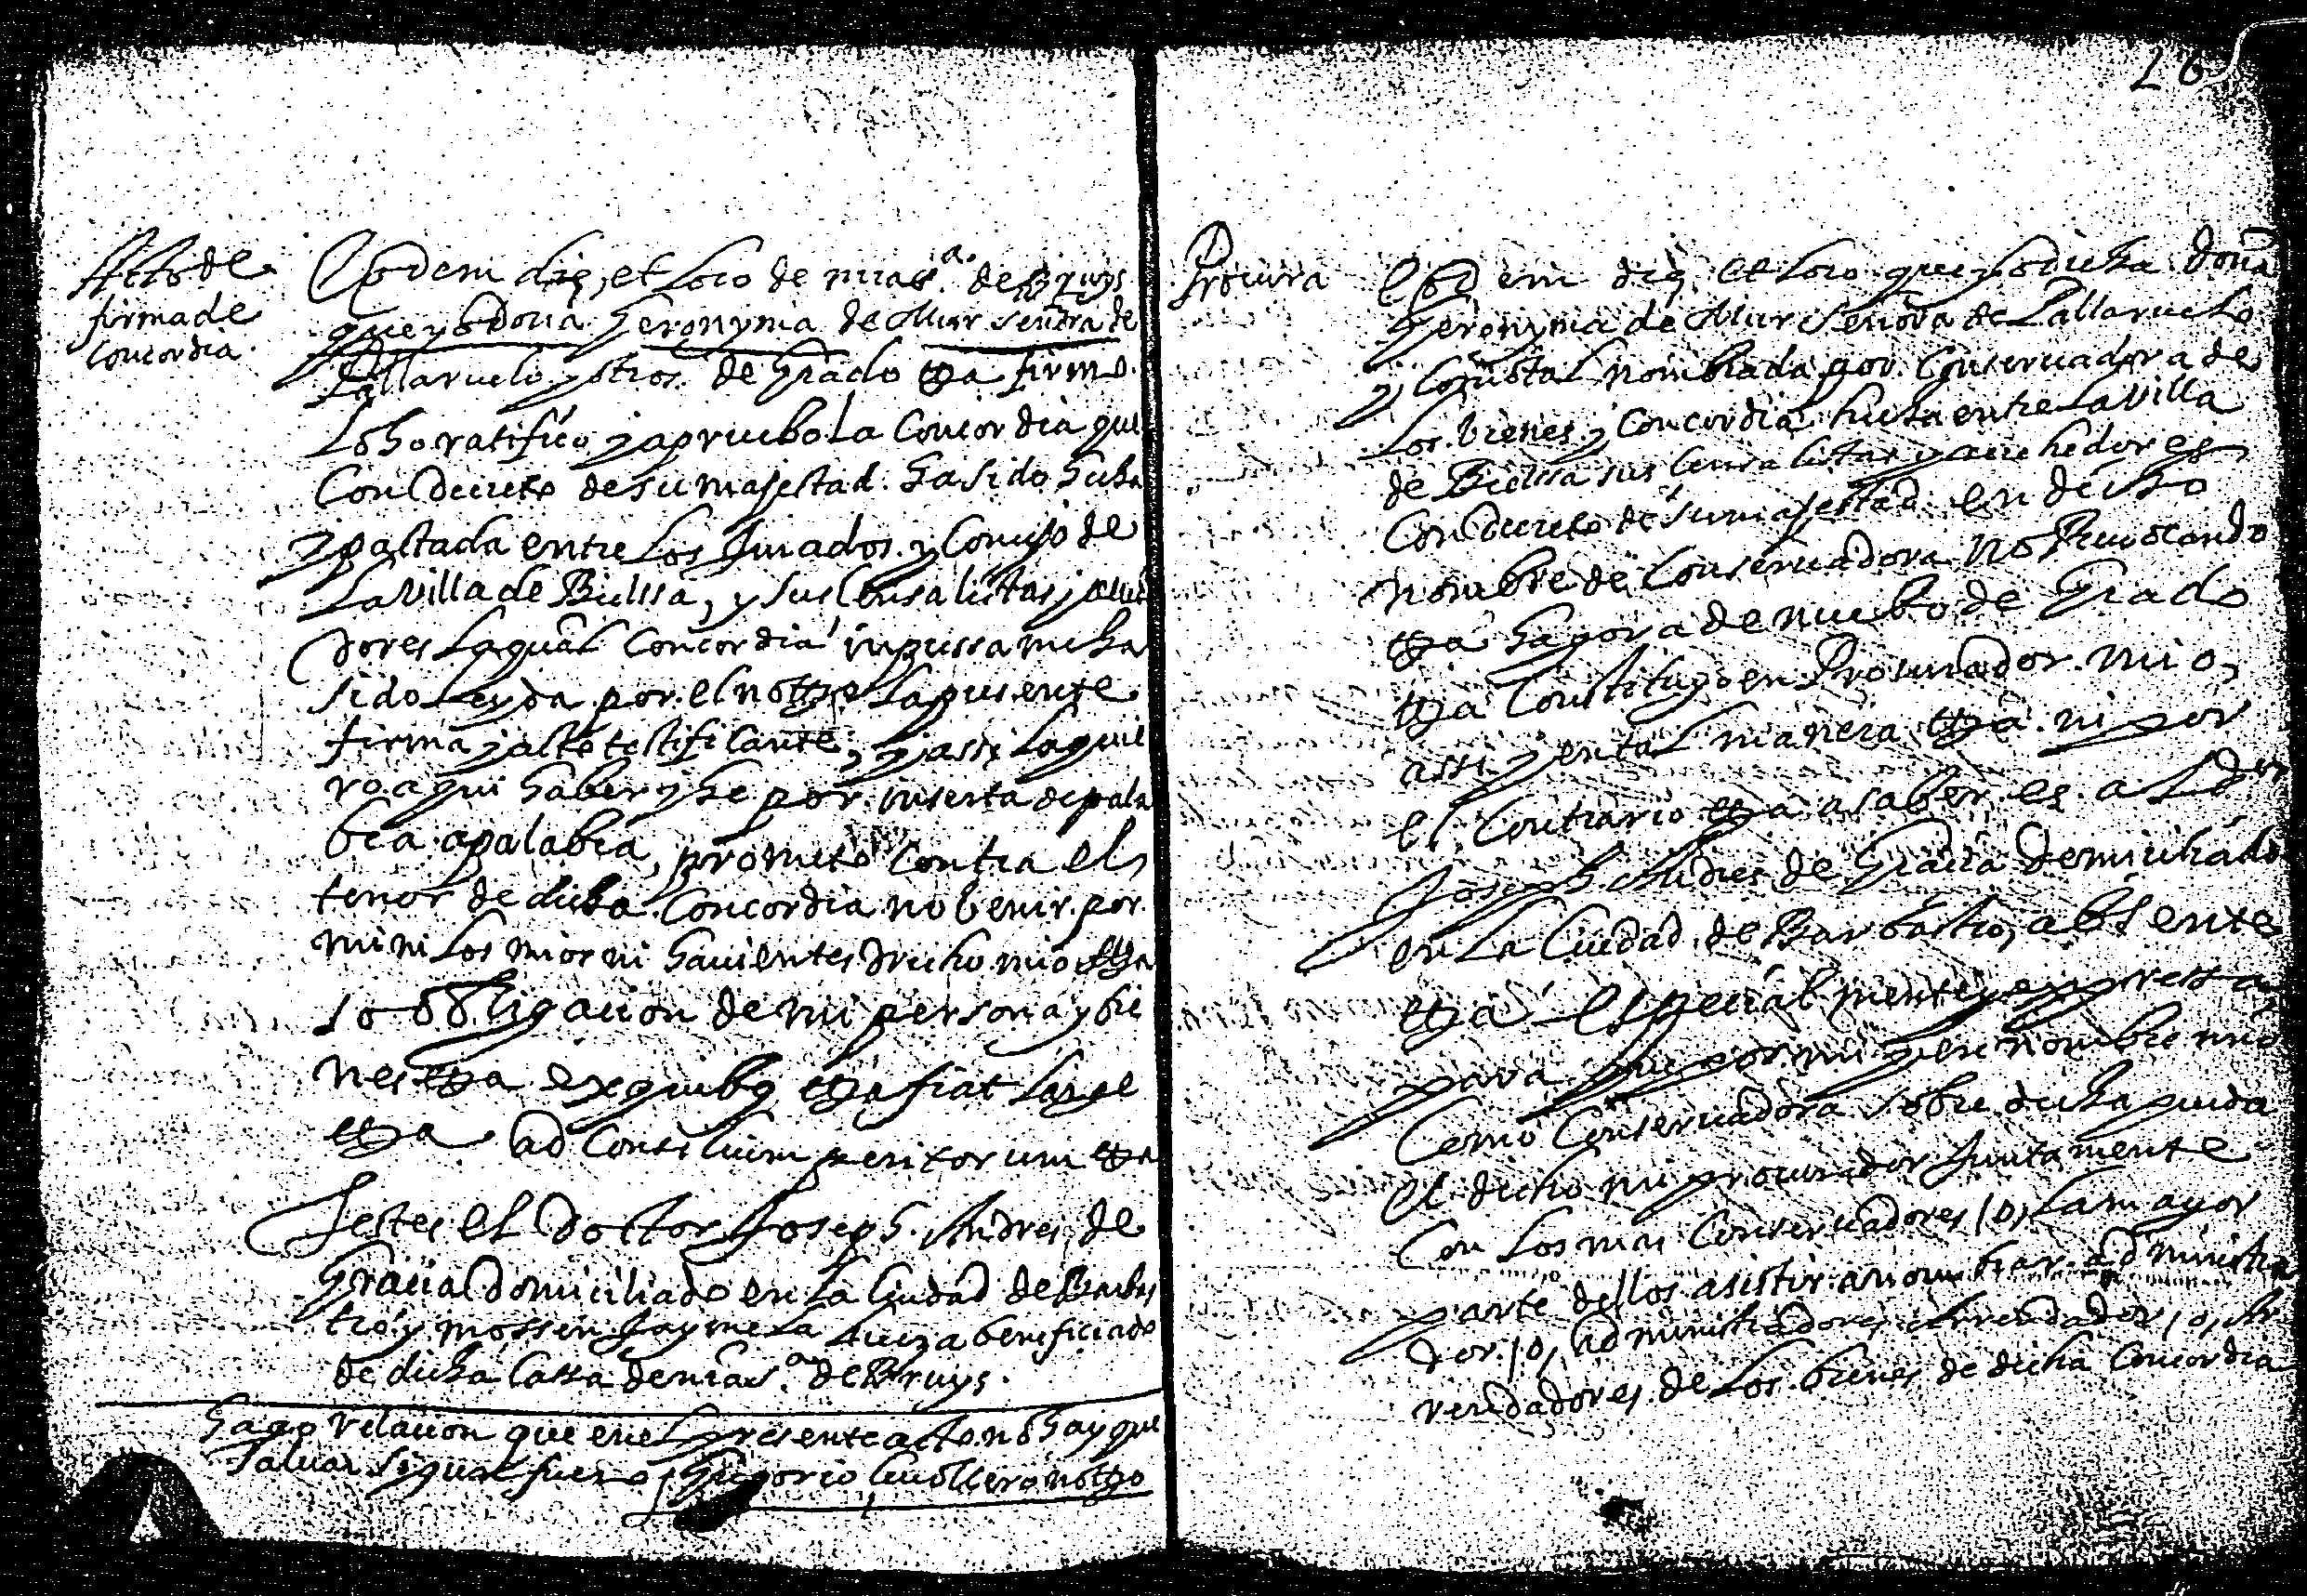 Acto de
firma de
Concordia.
Eodem die, et loco de nras.ª de Bruys
que yo dona Geronyma de Mur senora de
Pallaruelo y otros de Grado etta firmo
Loho ratifico y apruebo la Concordia que
Con Decreto de su majestad. Ha sido hecha
y pactada entre los Jurados y Consejo de
La villa de Bielssa, y sus Censalistas y acrehe
dores la qual Concordia inpressa me ha
sido leyda por el nottrº la presente
firma y acto testificante, y assi la quie
ro aqui haber y he por inserta de pala
bra a palabra, prometo contra el
tenor de dicha Concordia no benir por
mi ni los mios ni havientes drecho mio etta
so obligacion de mi persona y bie
nes etta ex quibq etta fiat large
etta ad Consilium peritorum etta
Testes el Doctor Joseph Andres de
Gracia domiciliado en la Ciudad de Barbas
tro y mossen Jayme La Lueza beneficiado
de dicha Cassa de nras.ª de Bruys.
Hago relacion que en el presente acto no hay que
salvar si qual fuero Gregorio Cavallero nottº
26
Procura
Eodem die et loco que yo dicha Dona
Geronyma de Mur senora de Pallaruelo
y como tal nombrada por Conservadora de
Los bienes y Concordia hecha entre La villa
de Bielssa sus Censalistas y acrehedores
Con Decreto de su majestad en dicho
nombre de Conservadora no Revocando
etta Hagora de nuebo de Grado
etta Constituyo en Procurador mio,
assi y en tal manera etta ni por
el Contrario etta a saber es al Dor
Joseph Andres de Gracia Domiciliado
en La Ciudad de Barbastro, absente
etta especialmente y expressa
para que por mi y en nombre mio
Como Conservadora sobre dicha pueda
el dicho mi procurador Juntamente
Con Los mas Conservadores, o, la mayor
parte dellos asistir a nombrar administra
dor, o, administradores, arrendador, o, Ar
rendadores de Los bienes de dicha Concordia